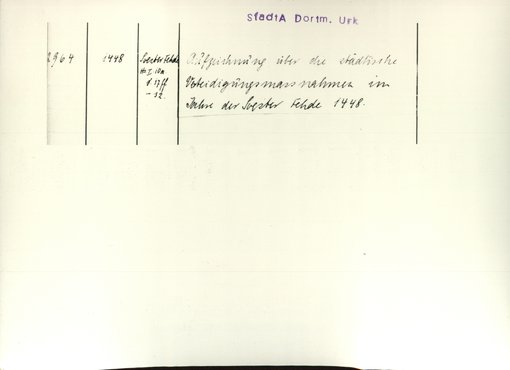 StadtA Dortm. Urk
2964
1448
Soester Fehde
Aufzeichnung über die städtische
Verteidigungsmassnahmen im
Jahre der Soester Fehde 1448.